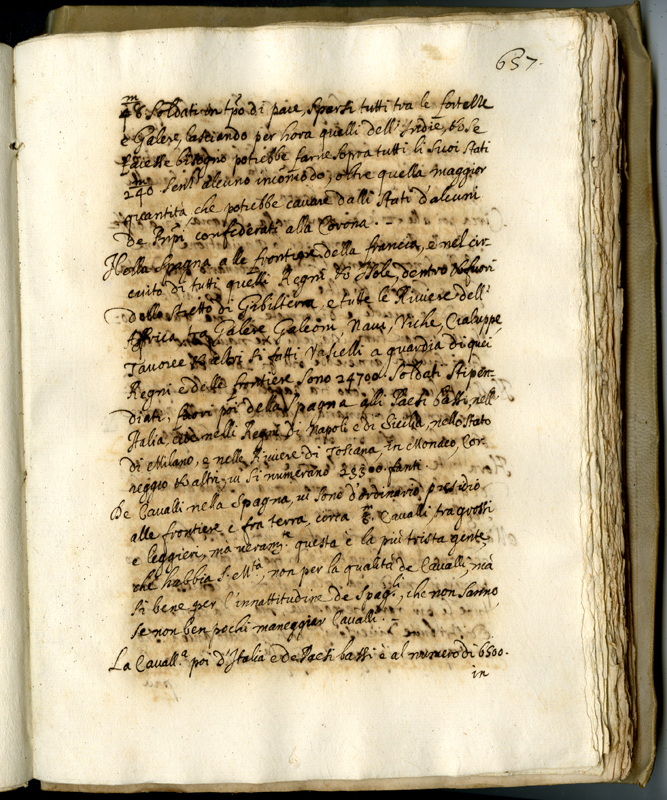 637.
m
48 Soldati in tpo di pace, sparsi tutti tra le fortezze
e Galere, lasciando per hora quelli dell'Indie, et se
facesse bisogno potrebbe farne sopra tutti li suoi Stati
m
240 senz' alcuno incommodo, oltre quella maggior
quantita, che potrebbe cavare dalli Stati d'alcuni
de Pnpi confederati alla Corona. -
Hella Spagna alle frontiere della francia, e nel cir-
cuito di tutti quelli Regni et Isole, dentro et fuori
dello stretto di Gibilterra, e tutte le Riviere dell'
Affrica, tra Galere Galeoni, Navi, Cialuppe,
Tavoree et altri si fatti Vascelli a guardia di quei
Regni e delle frontiere sono 24700. Soldati stipen-
diati, fuori poi della Spagna alli Paesi bassi nell'
Italia, cioè nelli Regni di Napoli e di Sicilia, nello stato
di Milano, e nelle Riviere di Toscana, in Monaco, Cor-
reggio et altri, vi si numerano 23300. fanti.
De Cavalli nella Spagna, vi sono d'ordinario presidio
alle frontiere e fra terra, circa Cavalli, tra grossi
e leggieri, mà veramte questa è la più trista gente,
che habbia S. Mta, non per la qualità de Cavalli, mà
si bene per l'innattitudine de Spagli, che non sanno,
se non ben pochi maneggiar Cavalli. -
La Cavalla poi d'Italia e de Paesi bassi è al numero di 6500.
in